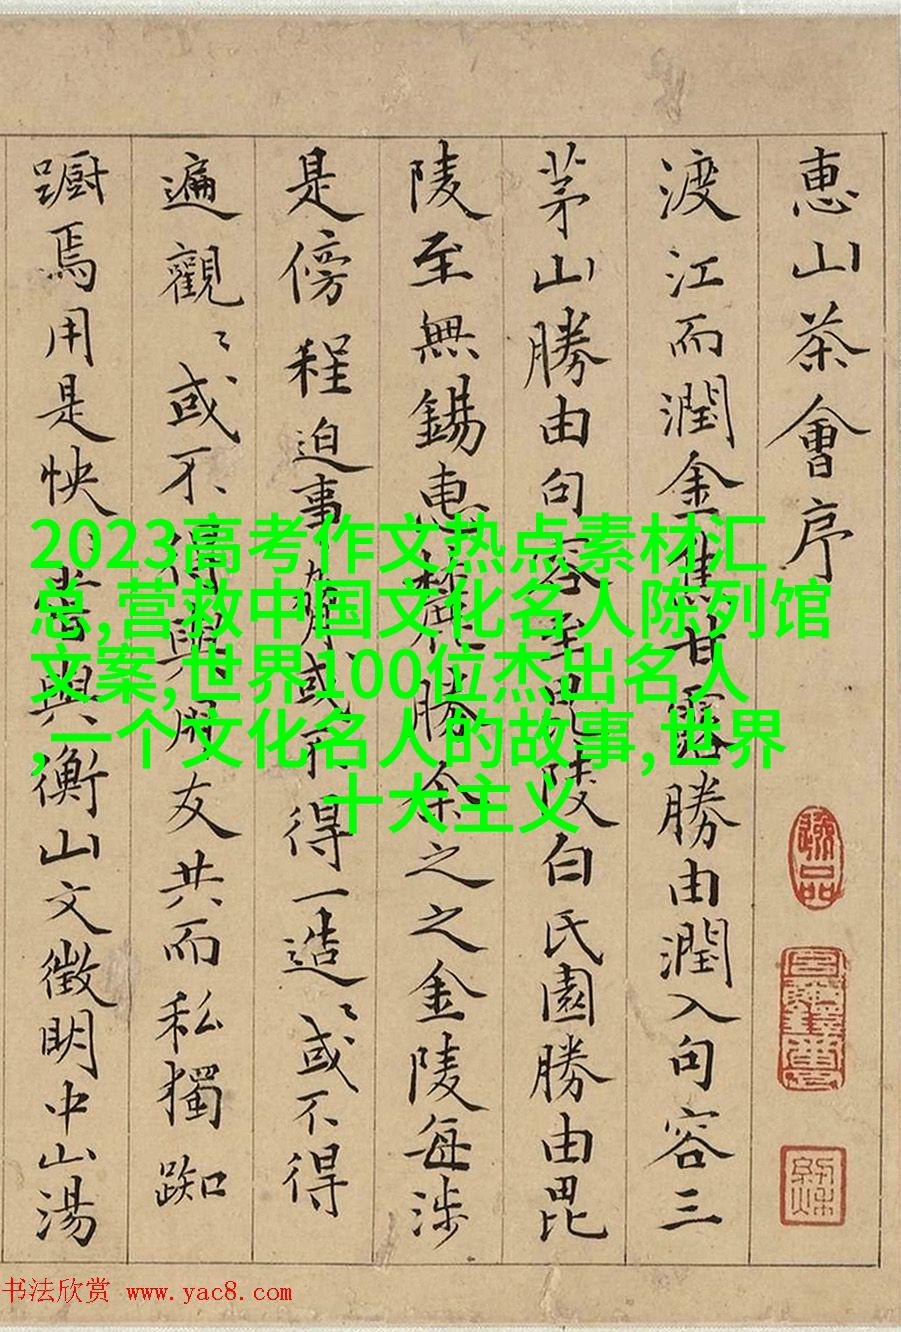 恵山茶會序
渡江而潤金焦甘露勝由潤入句容三
茅山勝由句容至毘陵白氏園勝由毘
陵至無錫恵麓勝余之之金陵每涉
是傍程迫事或不得一造〻或不得
遍觀〻或不得與朋友共而私獨踟
躕焉用是怏〻嘗與衡山文徵明中山湯
2023高考作文热点素材汇
总,营救中国文化名人陈列馆
文案,世界100位杰出名人
,一个文化名人的故事,世界
十大主义
书法欣赏 www.yac8.com